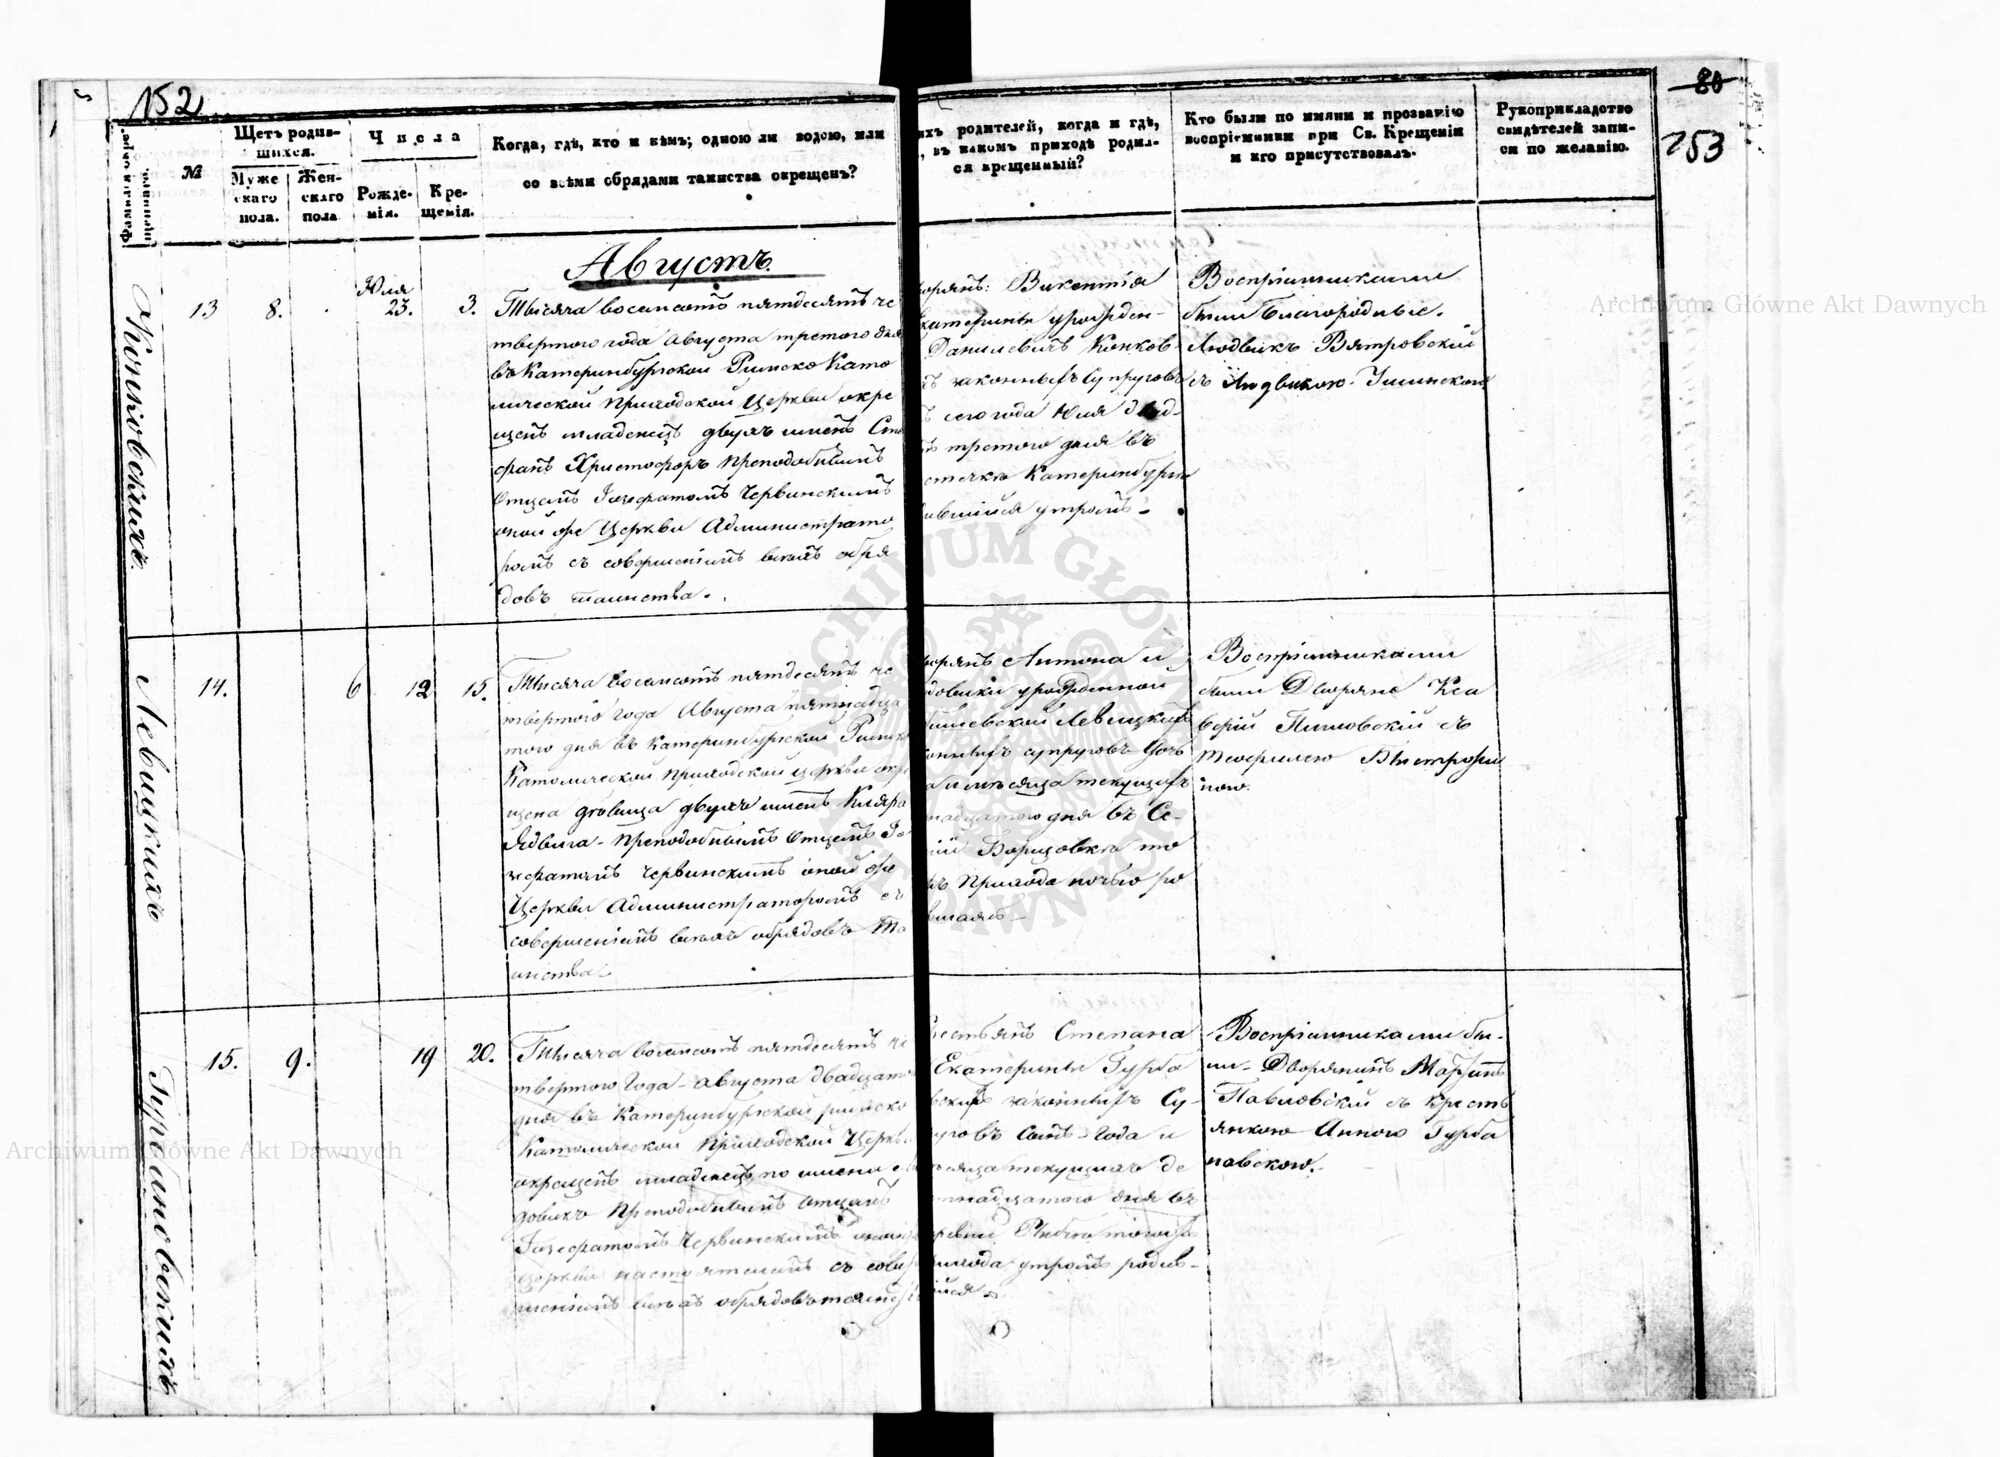 152
80
153
Фамилія окре-
щеннаго.
№
Щетъ родив-
шихся.
Муже
скаго
пола.
Жен-
скаго
пола
Числа
Рожде-
нія.
Кре-
щенія.
Когда, гдѣ, кто и кѣмъ; одною ли водою, или
со всѣми обрядами таинства окрещенъ?
ихъ родителей, когда и гдѣ,
въ какомъ приходѣ родил-
ся крещенный?
Кто были по имяни и прозванію
воспріемники при Св. Крещеніи
и кто присутствовалъ.
Рукоприкладство
свидѣтелей запи-
си по желанію.
Августъ.
13
8.
Юля
23.
3.
Тысяча восемсотъ пятдесятъ че
твертого года Августа третого дня
въ Катеринбургской Римско Като
лической Приходской Церкви окре
щенъ младенецъ двухъ именъ Сте
фанъ Христофоръ Преподобнымъ
Отцемъ Іозефатомъ Червинскимъ
оной же Церкви Администрато
ромъ съ совершеніемъ всѣхъ обря
довъ таинства.
ворянъ: Викентія
катерины урожден-
Данилевичъ
законныхъ Супруговъ
сего года Юля
третого дня въ
стечкѣ Катеринбурге
ившійся утромъ.
Воспріемниками
были Благородные.
Людвикъ Вятровскій
съ Людвикою
14.
6
12
15.
Левицкихъ
Тысяча восемсотъ пятдесятъ че
твертого Года Августа пятнадца
того дня въ Катеринбургской Римско
Католической Приходской церкви окре
щена дѣвица двухъ именъ Кляра
Ядвига Преподобнымъ Отцемъ Іо
зефатомъ Червинскимъ оной же
Церкви Администраторомъ съ
совершеніемъ всѣхъ обрядовъ Та
инства.
ворянъ Антона и
довики урожденной
Левицкихъ
конныхъ супруговъ Дочь
а и мѣсяца текущихъ
надцатого дня въ Се-
Борщовкѣ то
Прихода ночью ро
вшаяся
Воспріемниками
были Дворяне Кса
верій съ
Теофилею
ною.
15.
9.
19
20.
Гурбановскихъ
Тысяча восемсотъ пятдесятъ че
твертого Года Августа двадцато
дня въ Катеринбургской римско
Католической Приходской Церкви
окрещенъ младенецъ по имени
довикъ Преподобнымъ Отцемъ
Іозефатомъ Червинскимъ оной
церкви настоятелемъ съ совер
шеніемъ всѣхъ обрядовъ таинс
рестьянъ Степана
Екатерины Гурба
вскихъ законныхъ Су-
уговъ Сынъ Года и
сяца текущихъ де
тнадцатого дня въ
ревни
рихода утромъ родив-
ійся
Воспріемниками бы-
ли Дворянинъ Мартинъ
Павловскій съ крестъ
янкою Анною Гурба
новскою.
Archiwum Główne Akt Dawnych
Archiwum Główne Akt Dawnych
ARCHIWUM GŁÓWNE AKT DAWNYCH